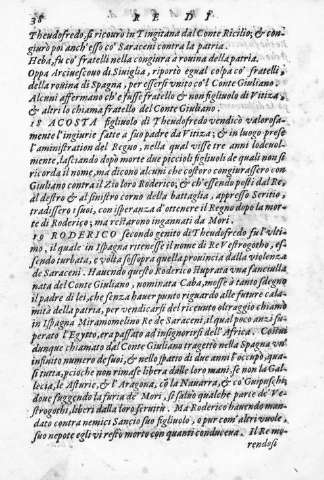 38 R E D I
Theudofredo, si ricourò in Tingitana dal Conte Ricilio; & con-
giurò poi anch'esso co' Saraceni contra la patria.
Heba, fu co' fratelli nella congiura a rouina della patria.
Oppa Arciuescouo di Siuiglia, riportò egual colpa co' fratelli,
della rouina di Spagna, per essersi vnito co'l Conte Giuliano.
Alcuni affermano ch'e' fusse fratello & non figliuolo di Vitiza;
& altri lo chiama fratello del Conte Giuliano.
18 ACOSTA figliuolo di Theudofredo vendicò valorosa-
mente l'ingiurie fatte a suo padre da Vitiza; & in luogo prese
l'aministration del Regno, nella qual visse tre anni lodeuol-
mente, lasciando dopò morte due piccioli figliuoli de quali non si
ricorda il nome, ma dicono alcuni che costoro congiurassero con
Giuliano contra il Zio loro Roderico; & ch'essendo posti dal Re,
al destro & al sinistro corno della battaglia, appresso Seritio,
tradissero i suoi, con isperanza d'ottenere il Regno dopò la mor-
te di Roderico; ma restarono ingannati da Mori.
19 RODERICO secondo genito di Theudofredo fu l'vlti-
mo, il quale in Ispagna ritenesse il nome di Re V'estrogotho, es-
sendo turbata, e volta sossopra quella prouincia dalla violenza
de Saraceni. Hauendo questo Roderico stuprata vna fanciulla
nata del Conte Giuliano, nominata Caba, mosse à tanto sdegno
il padre di lei, che senza hauer punto riguardo alle future cala-
mità della patria, per vendicarsi del riceuuto oltraggio chiamò
in Ispagna Miramomelino Re de Saraceni, il qual poco anzi su-
perato l'Egitto, era passato ad insignorirsi dell'Africa. Costui
dunque chiamato dal Conte Giuliano tragettò nella Spagna vn'
infinito numero de suoi, & nello spatio di due anni l'occupò, qua-
si tutta, pcioche non rimase libera dalle loro mani, se non la Gal-
lecia, le Asturie, & l'Aragona, cō la Nauarra, & co' Guipuschi,
doue fuggendo la furia de' Mori, si saluò qualche parte de' Ve-
strogothi, liberi dalla loro seruitù. Ma Roderico hauendo man-
dato contra nemici Sancio suo figliuolo, o pur com'altri vuole,
suo nepote egli vi restò morto con quanti conduceua. Il Re mo-
rendosi